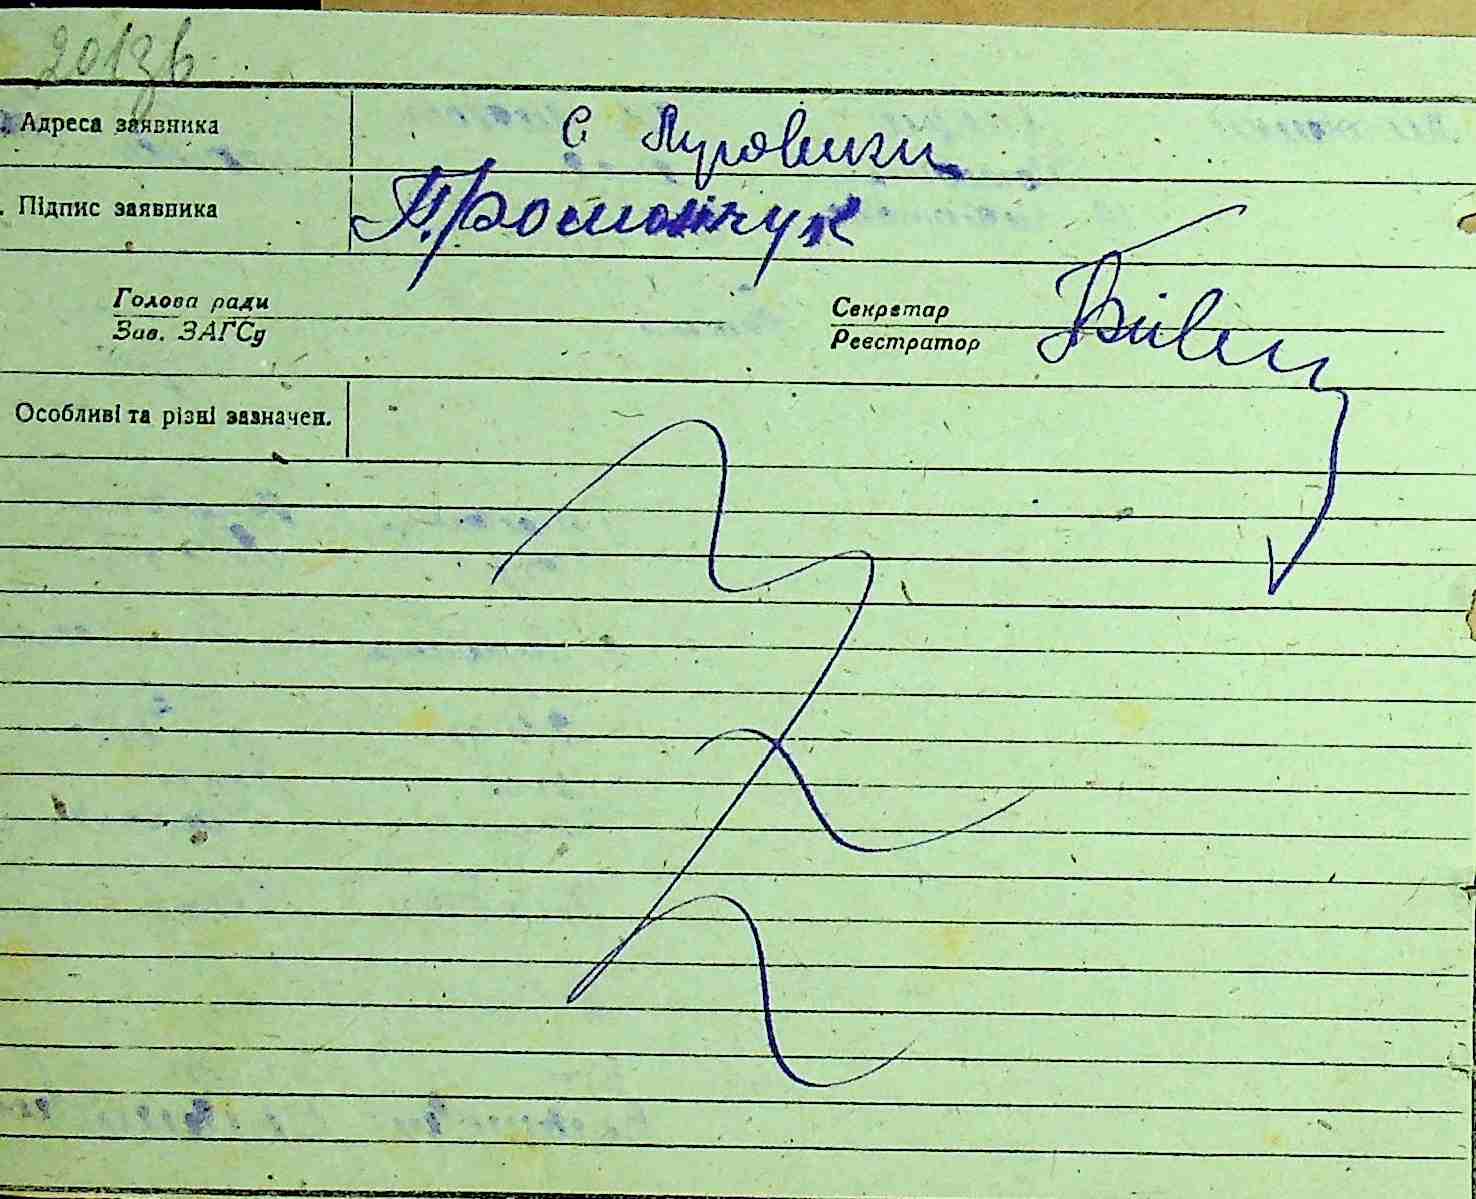 201зв
Адреса заявника с Пуровички
. Підпис заявника
Голова ради
Зав. ЗАГСу
Секретар
Реєстратор
Особливі та різні зазначен.